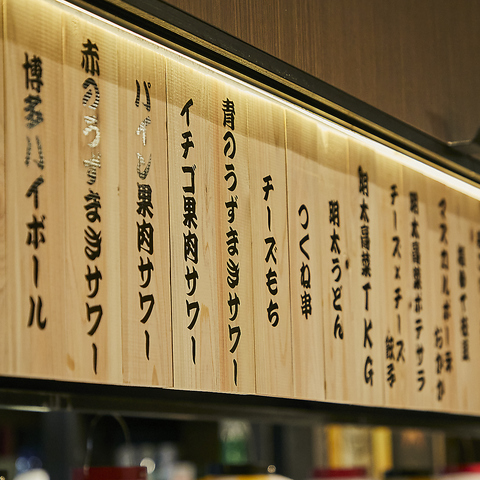 博多ハイボール
赤のうずまきサワー
パイン果肉サワー
イチゴ果肉サワー
青のうずまきサワー
チーズもち
つくね串
明太うどん
明太高菜TKG
チーズ×チーズ
餃子
明太高菜ポテサラ
マスカルポーネ
おかか